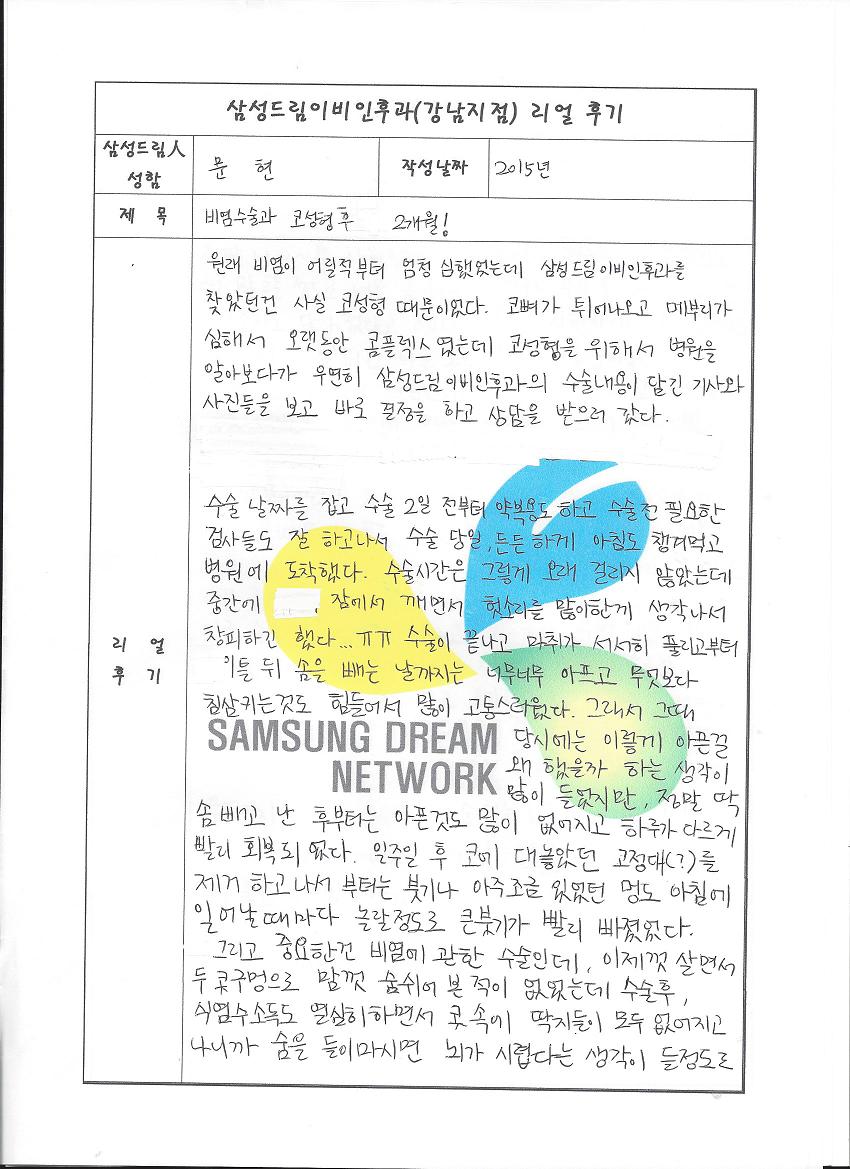 삼성드림이비인후과(강남지점) 리얼 후기
삼성드림人 성함
문 현
작성날짜
2015년
제 목
비염수술과 코성형 후 2개월!
리 얼
후 기
원래 비염이 어릴적부터 엄청 심했었는데 삼성드림이비인후과를
찾았던건 사실 코성형 때문이었다. 코뼈가 튀어나오고 메부리가
심해서 오랫동안 콤플렉스였는데 코성형을 위해서 병원을
알아보다가 우연히 삼성드림이비인후과의 수술내용이 담긴 기사와
사진들을 보고 바로 결정을 하고 상담을 받으러 갔다.
수술 날짜를 잡고 수술 2일 전부터 약복용도 하고 수술전 필요한
검사들도 잘 하고나서 수술 당일, 든든하게 아침도 챙겨먹고
병원에 도착했다. 수술시간은 그렇게 오래 걸리지 않았는데
중간에 , 잠에서 깨면서 헛소리를 많이한게 생각나서
창피하긴 했다...ㅠㅠ 수술이 끝나고 마취가 서서히 풀리고부터
이틀 뒤 솜을 빼는 날까지는 너무너무 아프고 무엇보다
침삼키는것도 힘들어서 많이 고통스러웠다. 그래서 그때
당시에는 이렇게 아픈걸
왜 했을까 하는 생각이
많이 들었지만, 정말 딱
SAMSUNG DREAM
NETWORK
솜 빼고 난 후부터는 아픈것도 많이 없어지고 하루가 다르게
빨리 회복되었다. 일주일 후 코에 대놓았던 고정대(?)를
제거 하고나서 부터는 붓기나 아주조금 있었던 멍도 아침에
일어날때마다 놀랄정도로 큰붓기가 빨리 빠졌었다.
그리고 중요한건 비염에 관한 수술인데, 이제껏 살면서
두 콧구멍으로 맘껏 숨쉬어 본 적이 없었는데 수술후,
식염수소독도 열심히하면서 콧 속에 딱지들이 모두 없어지고
나니까 숨을 들이마시면 뇌가 시렵다는 생각이 들정도로